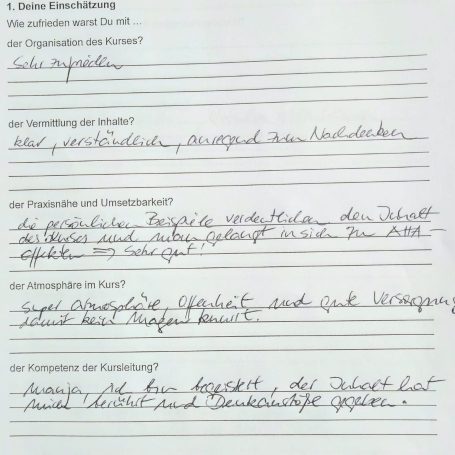 1. Deine Einschätzung
Wie zufrieden warst Du mit ...
der Organisation des Kurses?
Sehr zufrieden
der Vermittlung der Inhalte?
klar, verständlich, anregend zum Nachdenken
der Praxisnähe und Umsetzbarkeit?
die persönlichen Beispiele verdeutlichen den Inhalt
des und man gelangt in sich zu AHA-
Effekten => Sehr gut!
der Atmosphäre im Kurs?
super Atmosphäre, Offenheit und gute Versorgung
damit kein Magen knurrt.
der Kompetenz der Kursleitung?
Manja, ich bin begeistert, der Inhalt hat
mich berührt und Denkanstöße gegeben.